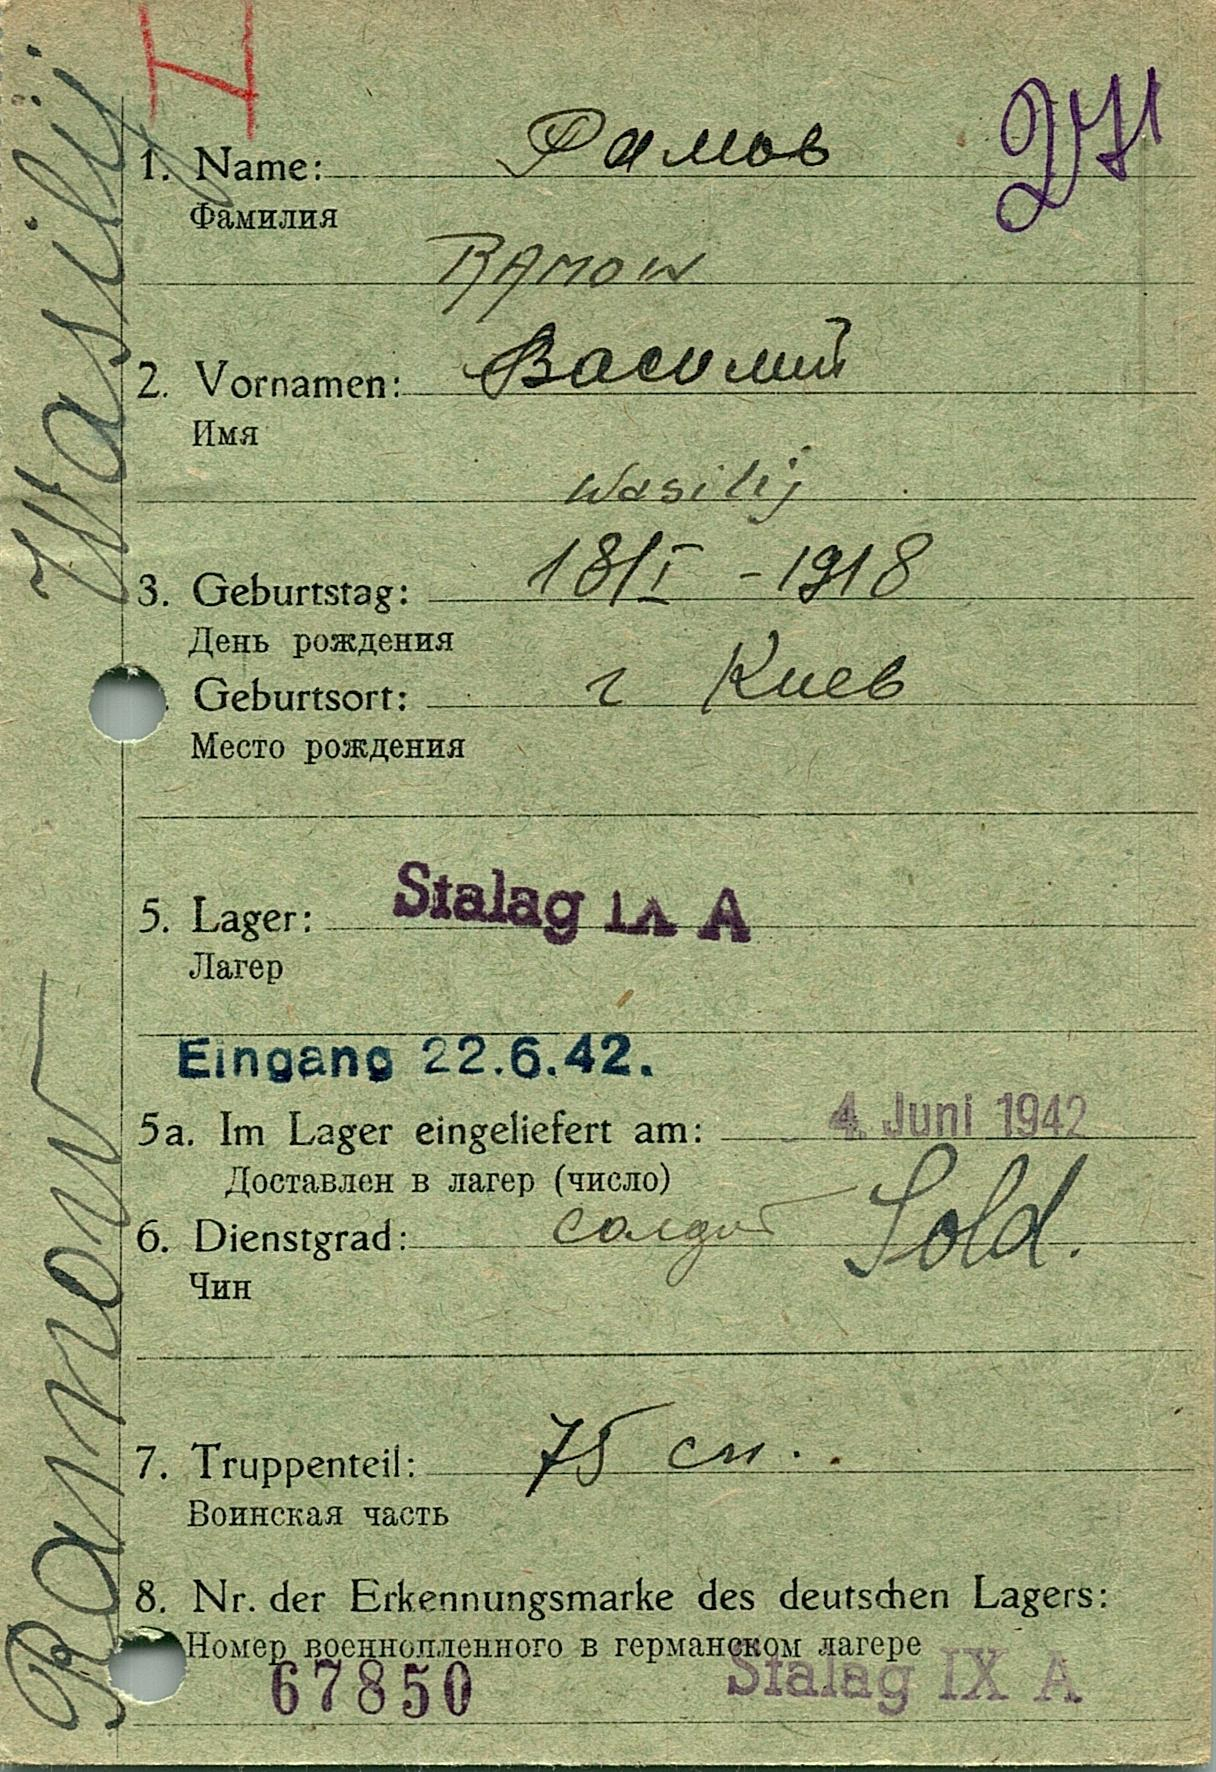 Wasilij
Ramow
1. Name: Рамов
Фамилия
RAMOW
2. Vornamen: Василий
Имя
Wasilij
3. Geburtstag: 18/I - 1918
День рождения
Geburtsort: г Киев
Место рождения
5. Lager: Stalag IX A
Лагер
Eingang 22.6.42.
5a. Im Lager eingeliefert am: 4. Juni 1942
Доставлен в лагер (число)
6. Dienstgrad: солдат Sold.
Чин
7. Truppenteil: 75 сп.
Воинская часть
8. Nr. der Erkennungsmarke des deutschen Lagers:
Номер военнопленного в германском лагере
67850 Stalag IX A